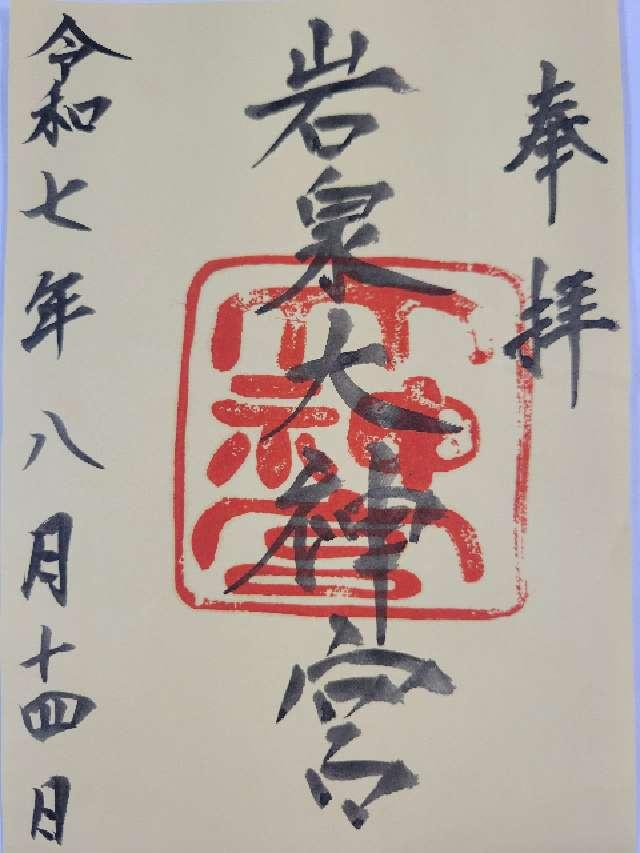 奉拝
岩泉大神宮
令和七年八月十四日